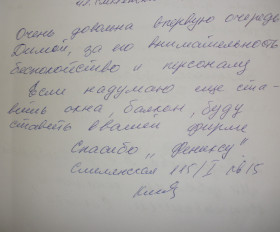 Очень довольна в первую очередь
Димой, за его внимательность
беспокойство и персоналу
Если надумаю еще ста-
вить окна, балкон, буду
ставить в вашей фирме
Спасибо „Фениксу"
Смелянская 115/I кв 15